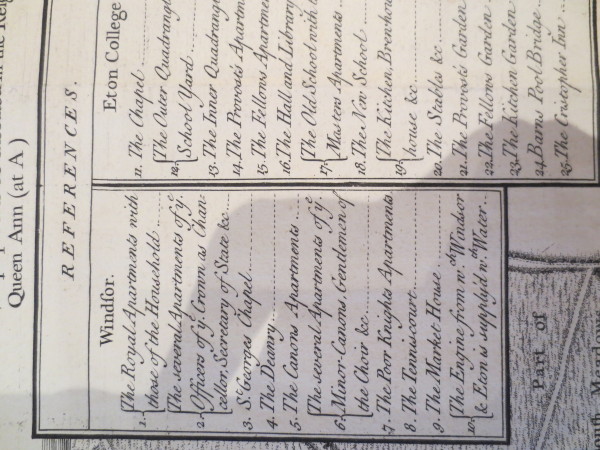 Queen Ann (at A)
REFERENCES.
Windsor.
1. The Royal Apartments with
those of the Household
The several Apartments of yᵉ
2. Officers of yᵉ Crown as Chan-
cellor, Secretary of State &c
3. Sᵗ Georges Chapel
4. The Deanry
5. The Canons Apartments
The several Apartments of yᵉ
6. Minor-Canons, Gentlemen of
the Choir &c.
7. The Poor Knights Apartments
8. The Tenniscourt
9. The Market House
The Engine from wᶜʰ Windsor
10. & Eton is supply'd wᵗʰ Water
Eton College
11. The Chapel
The Outer Quadrangl
12. School Yard
13. The Inner Quadrangl
14. The Provosts Apartm
15. The Fellows Apartment
16. The Hall and Library
The Old School with
17. Masters Apartments
18. The New School
The Kitchen, Brewhou
19. house &c
20. The Stables &c
21. The Provosts Garden
22. The Fellows Garden
23. The Kitchen Garden
24. Barns Pool Bridge
25. The Cristopher Inn
Part of
outh Meadows